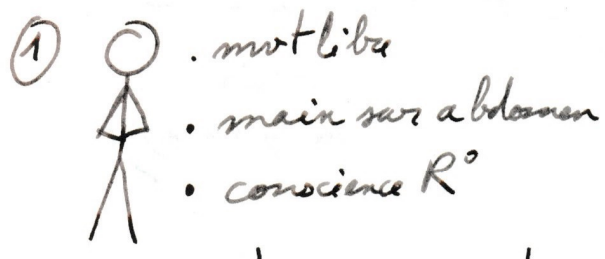 ① . mvt libre
. main sur abdomen
. conscience R°